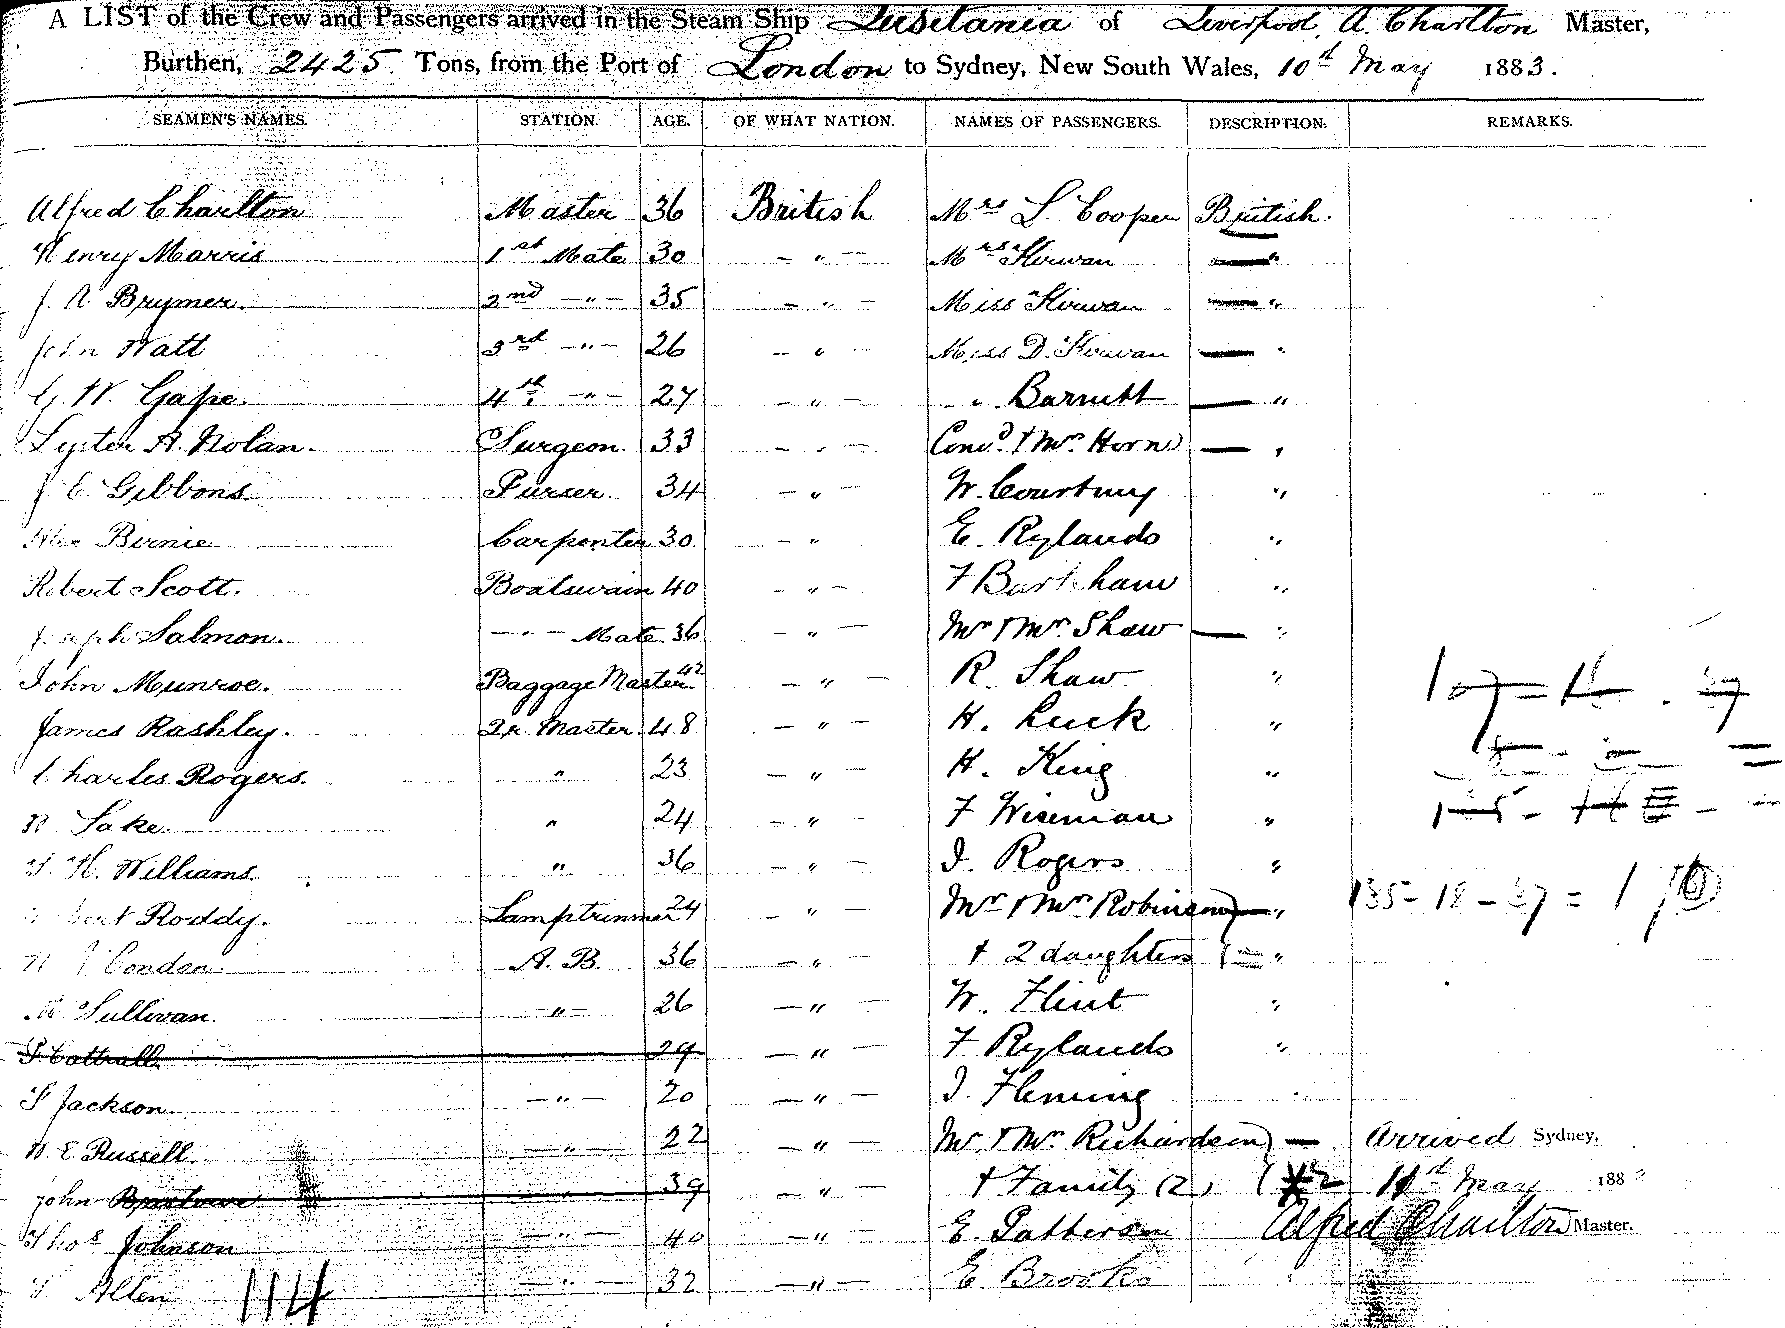 A LIST of the Crew and Passengers arrived in the Steam Ship Lusitania of Liverpool, A. Charlton Master,
Burthen, 2425 Tons, from the Port of London to Sydney, New South Wales, 10th May 1883.
SEAMEN'S NAMES. STATION. AGE. OF WHAT NATION. NAMES OF PASSENGERS. DESCRIPTION. REMARKS.
Alfred Charlton Master 36 British Mrs L Cooper British.
Henry Marris 1st Mate 30 — " — Mrs Kirwan — "
J. A. Brymer. 2nd — " — 35 — " — Miss Kirwan — "
John Watt 3rd — " — 26 — " — Miss D. Kirwan — "
G. W. Gape. 4th — " — 27 — " — " Barnett — "
Lyster A. Nolan. Surgeon. 33 — " — & Mrs Horn — "
J. E. Gibbons. Purser. 34 — " W. Courtney "
Alex Birnie Carpenter 30 — " E. Rylands "
Robert Scott. Boatswain 40 — " — F "
Joseph Salmon. — " — Mate 36 — " — Mr & Mrs Shaw — "
John Munroe. Baggage Master 42 — " — R. Shaw "
James Rashley. Qr Master 48 — " — H. Luck "
Charles Rogers. " 23 — " — H. King "
Lake. " 24 — " — F Wiseman "
H. Williams " 36 — " — J. Rogers "
Roddy. Lamptrimmer 24 — " — Mr & Mrs Robinson) — " 135 - 18 - 37 =
Condon A. B. 36 — " — + 2 daughters ( = "
Sullivan. — " — 26 — " — W. Flint "
29 — " — F Rylands "
Jackson. — " — 20 — " — J. Fleming
E Russell. — " — 22 — " — Mr & Mrs Richardson) — Arrived Sydney,
John " 39 — " — + Family (2) 11th May 188
Thos Johnson — " — 40 — " E. Patterson Alfred Charlton Master.
Allen — " — 32 — " — E. Brooks
114